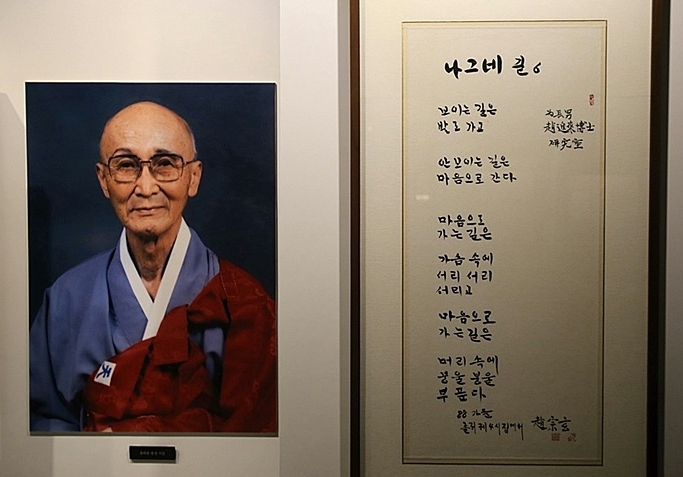 나그네 길 6
보이는 길은
발로 가고
안 보이는 길은
마음으로 간다
마음으로
가는 길은
가슴 속에
서리 서리
서리고
마음으로
가는 길은
머리 속에
몽울 몽울
부푼다
88 가을
趙宗玄
博士
研究室